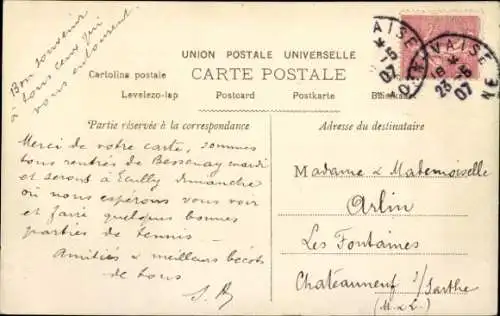 Bon souvenir
à tous ceux qui
vous entourent.
VAISE
16
23 -5
07
UNION POSTALE UNIVERSELLE
Cartolina postale
CARTE POSTALE
Levelezo-lap
Postcard
Postkarte
Partie réservée à la correspondance
Adresse du destinataire
Merci de votre carte, sommes
tous rentrés de Bessenay mardi
et serons à Ecully dimanche
où nous espérons vous voir
et faire quelques bonnes
parties de tennis
Amitiés & meilleurs bécots
de tous
Madame & Mademoiselle
Arlin
Les Fontaines
Chateauneuf s/Sarthe
(M & L.)